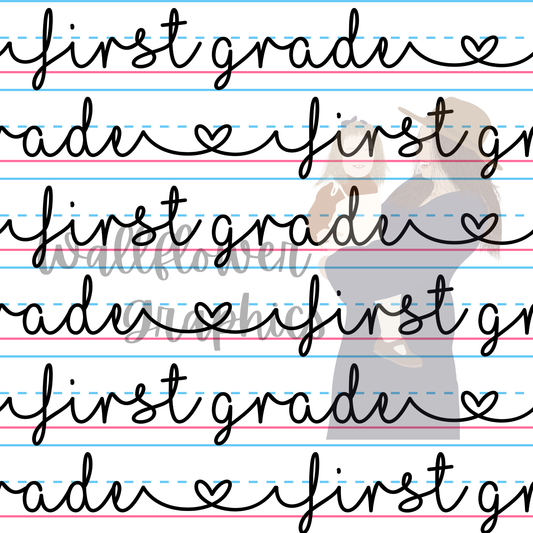 first grade
rade first gr
first grade
wallflower
rade first gr
Graphics
first grade
rade first gr